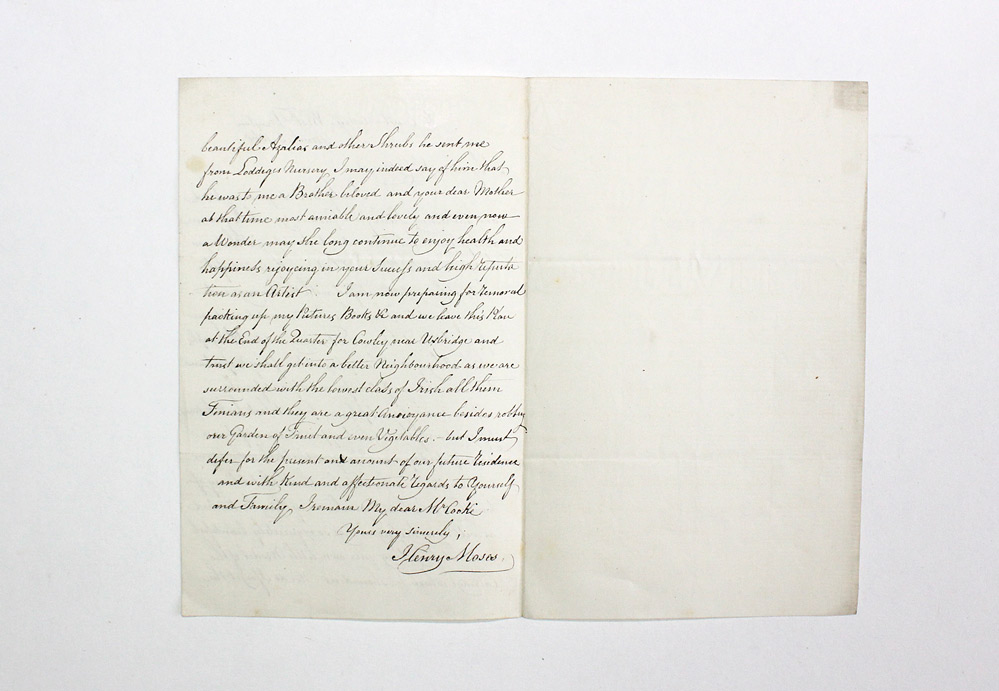 beautiful Azalias and other Shrubs he sent me
from Loddiges Nursery, I may indeed say of him that
he was to me a Brother beloved and your dear Mother
at that time most amiable and lovely and even now
a Wonder may she long continue to enjoy health and
happiness rejoycing in your Success and high reputa
tion as an Artist I am now preparing for removal
packing up my Pictures Books &c and we leave this
at the End of the Quarter for Cowley near Uxbridge and
trust we shall get into a better Neighbourhood as we are
surrounded with the lowest class of Irish all them
Finians and they are a great Annoyance besides robbing
our Garden of Fruit and even Vigetables. - but I must
defer for the present an account of our future residence
and with Kind and affectionate regards to Yourself
and Family, I remain My dear Mr Cooke
Yours very sincerely,
Henry Moses